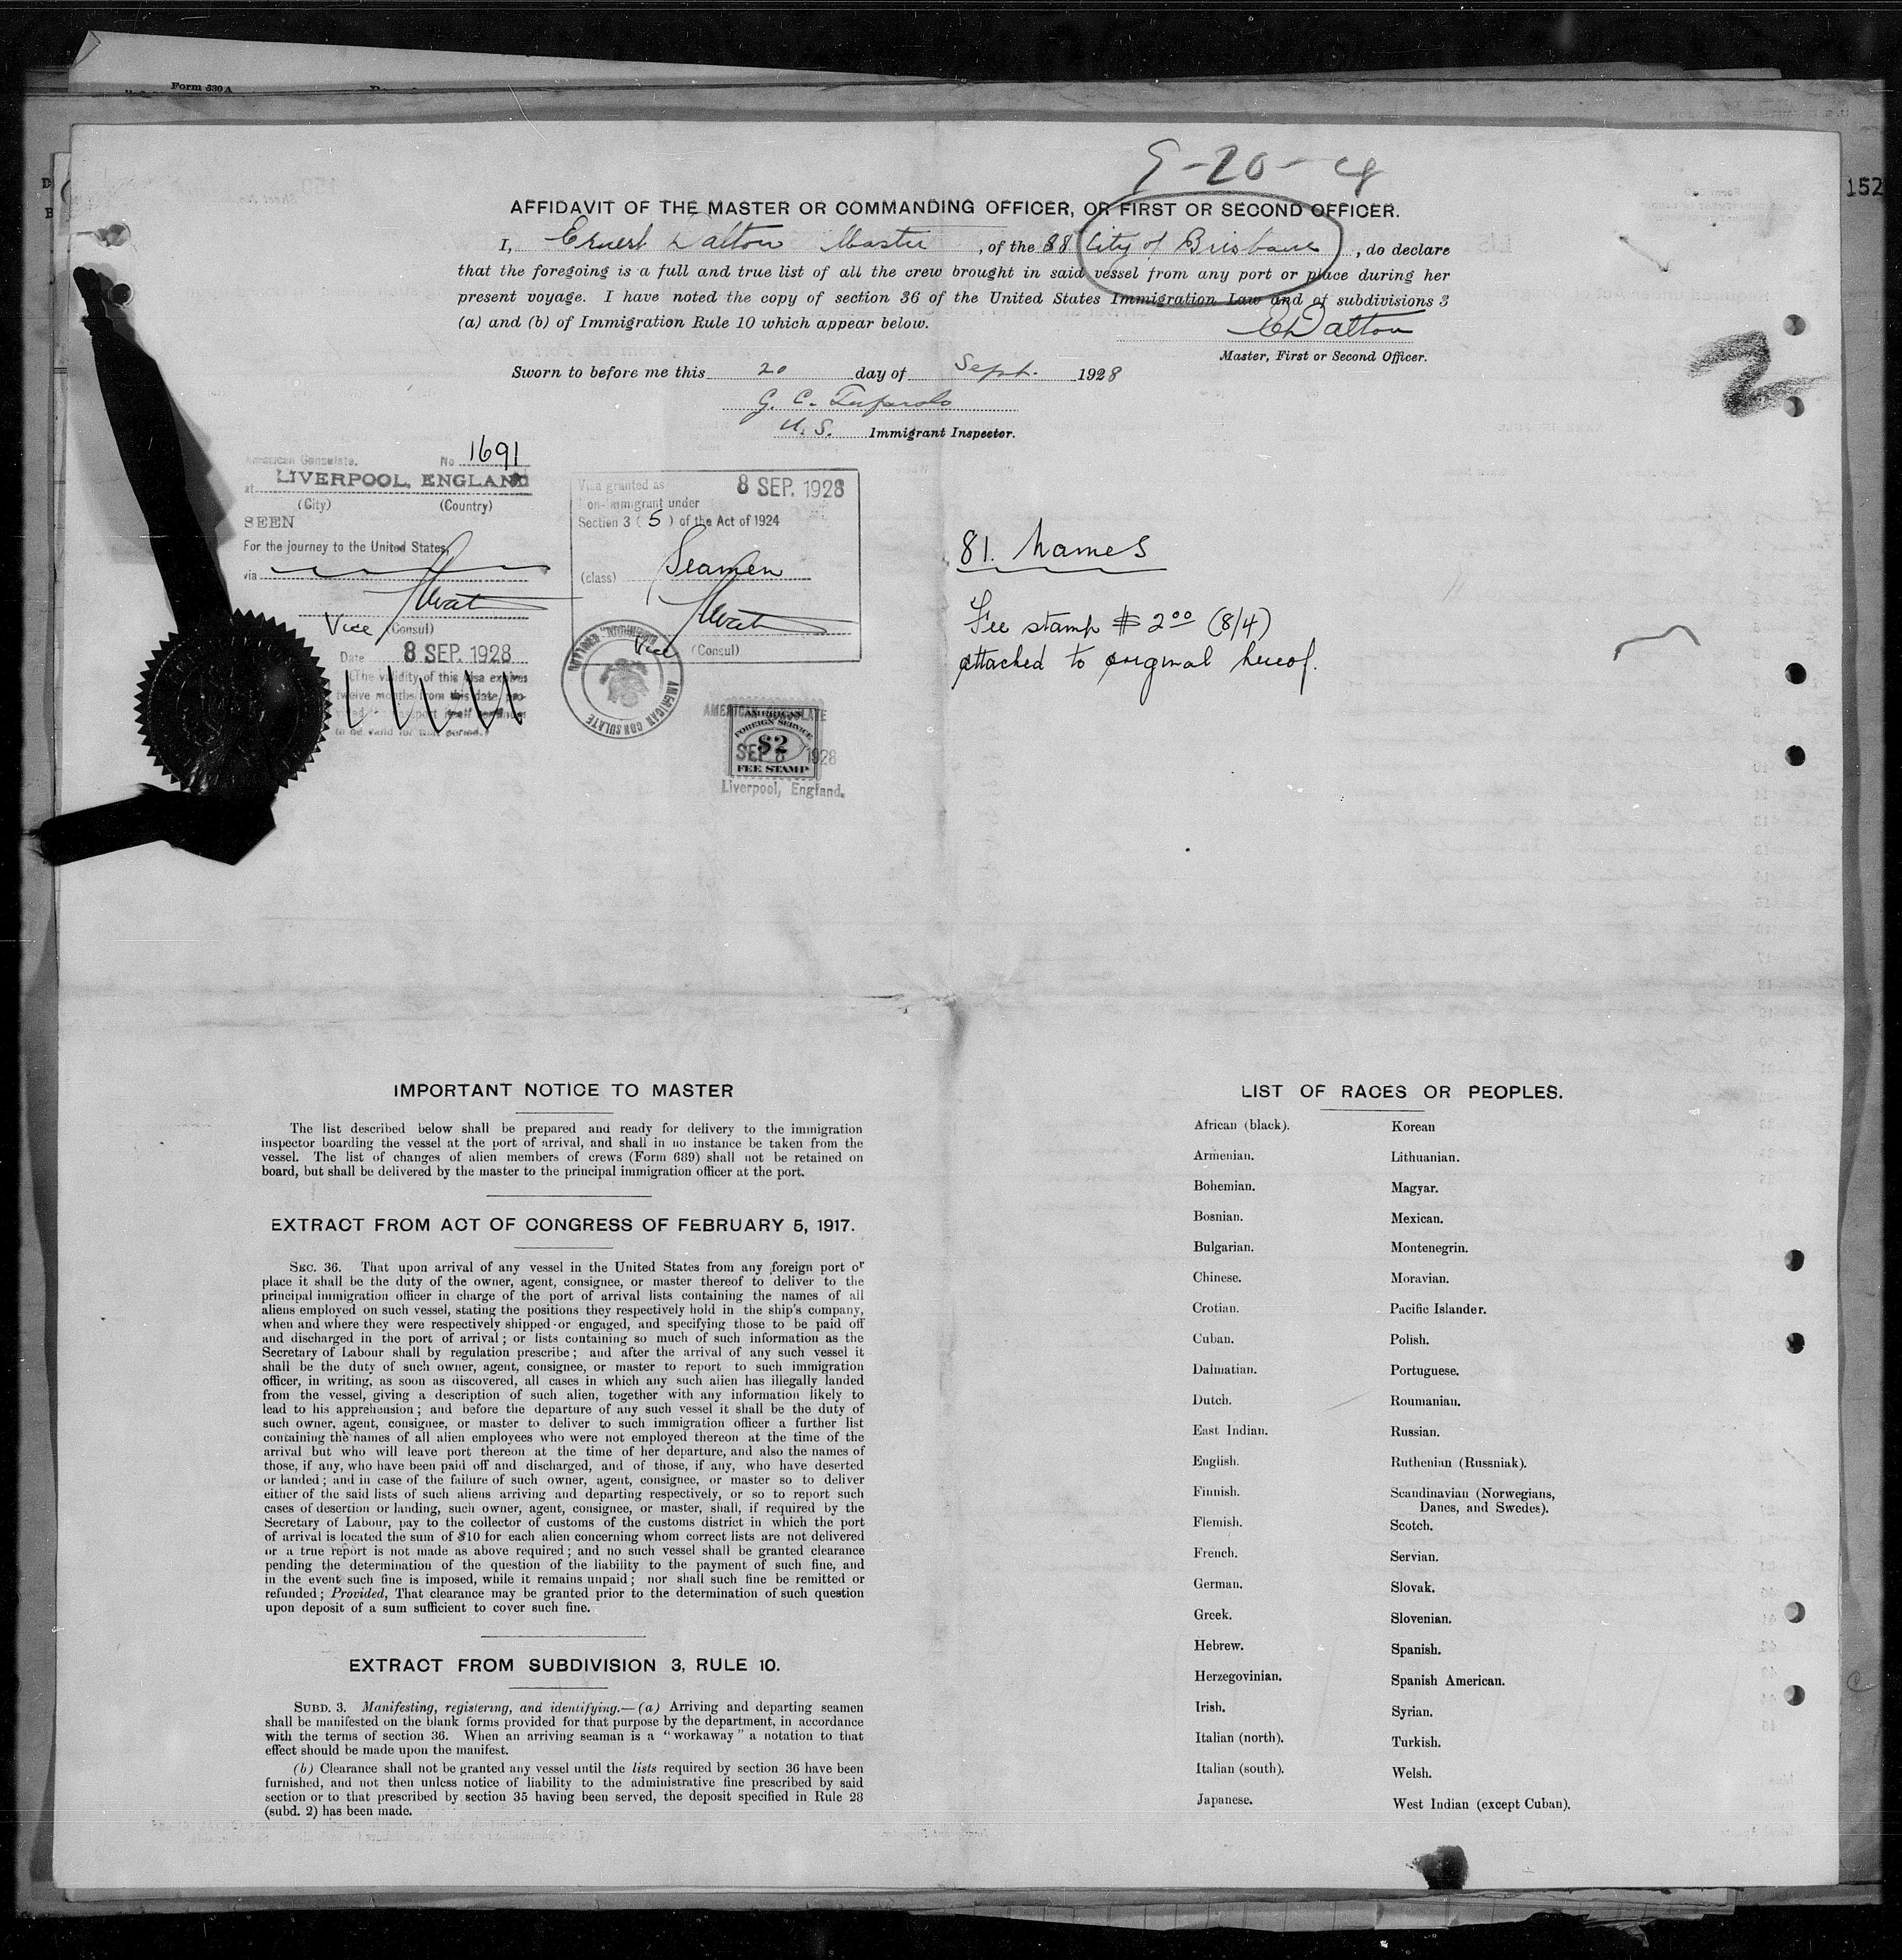 Form 630 A
9-20-28
152
AFFIDAVIT OF THE MASTER OR COMMANDING OFFICER, OR FIRST OR SECOND OFFICER.
I, Ernest Dalton Master, of the SS City of Brisbane, do declare
that the foregoing is a full and true list of all the crew brought in said vessel from any port or place during her
present voyage. I have noted the copy of section 36 of the United States Immigration Law and of subdivisions 3
(a) and (b) of Immigration Rule 10 which appear below.
E Dalton
Master, First or Second Officer.
Sworn to before me this 20 day of Sept. 1928
G. C.
U.S. Immigrant Inspector.
2
American Consulate. No 1691
at LIVERPOOL, ENGLAND
(City) (Country)
SEEN
For the journey to the United States,
via
Vice (Consul)
Date 8 SEP. 1928
(The validity of this visa expires
twelve months from this date, pro-
vided passport itself continues
to be valid for that period.)
Visa granted as 8 SEP. 1928
non-immigrant under
Section 3 (5) of the Act of 1924
(class) Seamen
Vice (Consul)
AMERICAN CONSULATE
LIVERPOOL, ENGLAND
AMERICAN CONSULATE
AMERICAN
FOREIGN SERVICE
$2
SEP 8 1928
FEE STAMP
Liverpool, England.
81. Names
Fee stamp $2 00 (8/4)
attached to original hereof.
IMPORTANT NOTICE TO MASTER
The list described below shall be prepared and ready for delivery to the immigration
inspector boarding the vessel at the port of arrival, and shall in no instance be taken from the
vessel. The list of changes of alien members of crews (Form 689) shall not be retained on
board, but shall be delivered by the master to the principal immigration officer at the port.
EXTRACT FROM ACT OF CONGRESS OF FEBRUARY 5, 1917.
SEC. 36. That upon arrival of any vessel in the United States from any foreign port or
place it shall be the duty of the owner, agent, consignee, or master thereof to deliver to the
principal immigration officer in charge of the port of arrival lists containing the names of all
aliens employed on such vessel, stating the positions they respectively hold in the ship's company,
when and where they were respectively shipped or engaged, and specifying those to be paid off
and discharged in the port of arrival; or lists containing so much of such information as the
Secretary of Labour shall by regulation prescribe; and after the arrival of any such vessel it
shall be the duty of such owner, agent, consignee, or master to report to such immigration
officer, in writing, as soon as discovered, all cases in which any such alien has illegally landed
from the vessel, giving a description of such alien, together with any information likely to
lead to his apprehension; and before the departure of any such vessel it shall be the duty of
such owner, agent, consignee, or master to deliver to such immigration officer a further list
containing the names of all alien employees who were not employed thereon at the time of the
arrival but who will leave port thereon at the time of her departure, and also the names of
those, if any, who have been paid off and discharged, and of those, if any, who have deserted
or landed; and in case of the failure of such owner, agent, consignee, or master so to deliver
either of the said lists of such aliens arriving and departing respectively, or so to report such
cases of desertion or landing, such owner, agent, consignee, or master, shall, if required by the
Secretary of Labour, pay to the collector of customs of the customs district in which the port
of arrival is located the sum of $10 for each alien concerning whom correct lists are not delivered
or a true report is not made as above required; and no such vessel shall be granted clearance
pending the determination of the question of the liability to the payment of such fine, and
in the event such fine is imposed, while it remains unpaid; nor shall such fine be remitted or
refunded; Provided, That clearance may be granted prior to the determination of such question
upon deposit of a sum sufficient to cover such fine.
EXTRACT FROM SUBDIVISION 3, RULE 10.
SUBD. 3. Manifesting, registering, and identifying.—(a) Arriving and departing seamen
shall be manifested on the blank forms provided for that purpose by the department, in accordance
with the terms of section 36. When an arriving seaman is a "workaway" a notation to that
effect should be made upon the manifest.
(b) Clearance shall not be granted any vessel until the lists required by section 36 have been
furnished, and not then unless notice of liability to the administrative fine prescribed by said
section or to that prescribed by section 35 having been served, the deposit specified in Rule 28
(subd. 2) has been made.
LIST OF RACES OR PEOPLES.
African (black). Korean
Armenian. Lithuanian.
Bohemian. Magyar.
Bosnian. Mexican.
Bulgarian. Montenegrin.
Chinese. Moravian.
Crotian. Pacific Islander.
Cuban. Polish.
Dalmatian. Portuguese.
Dutch. Roumanian.
East Indian. Russian.
English. Ruthenian (Russniak).
Finnish. Scandinavian (Norwegians,
Danes, and Swedes).
Flemish. Scotch.
French. Servian.
German. Slovak.
Greek. Slovenian.
Hebrew. Spanish.
Herzegovinian. Spanish American.
Irish. Syrian.
Italian (north). Turkish.
Italian (south). Welsh.
Japanese. West Indian (except Cuban).